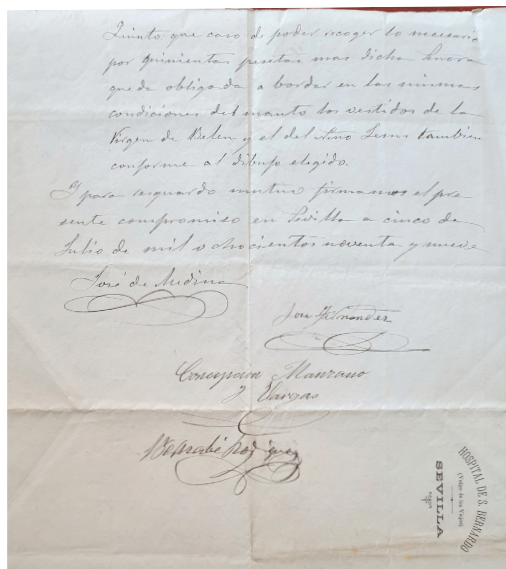 Quinto que caso de poder recoger lo necesario
por quinientas pesetas mas dicha Señora
queda obligada a bordar en las mismas
condiciones del manto los vestidos de la
Virgen de Belen y el del Niño Jesus tambien
conforme al dibujo elegido.
Y para resguardo mutuo firmamos el pre
sente compromiso en Sevilla a cinco de
Julio de mil ochocientos noventa y nueve
José de Medina
Jose Fernandez
Concepcion Manzano
y Vargas
Bernabé Rodriguez
HOSPITAL DE S. BERNARDO
(Vulgo de los Viejos)
SEVILLA